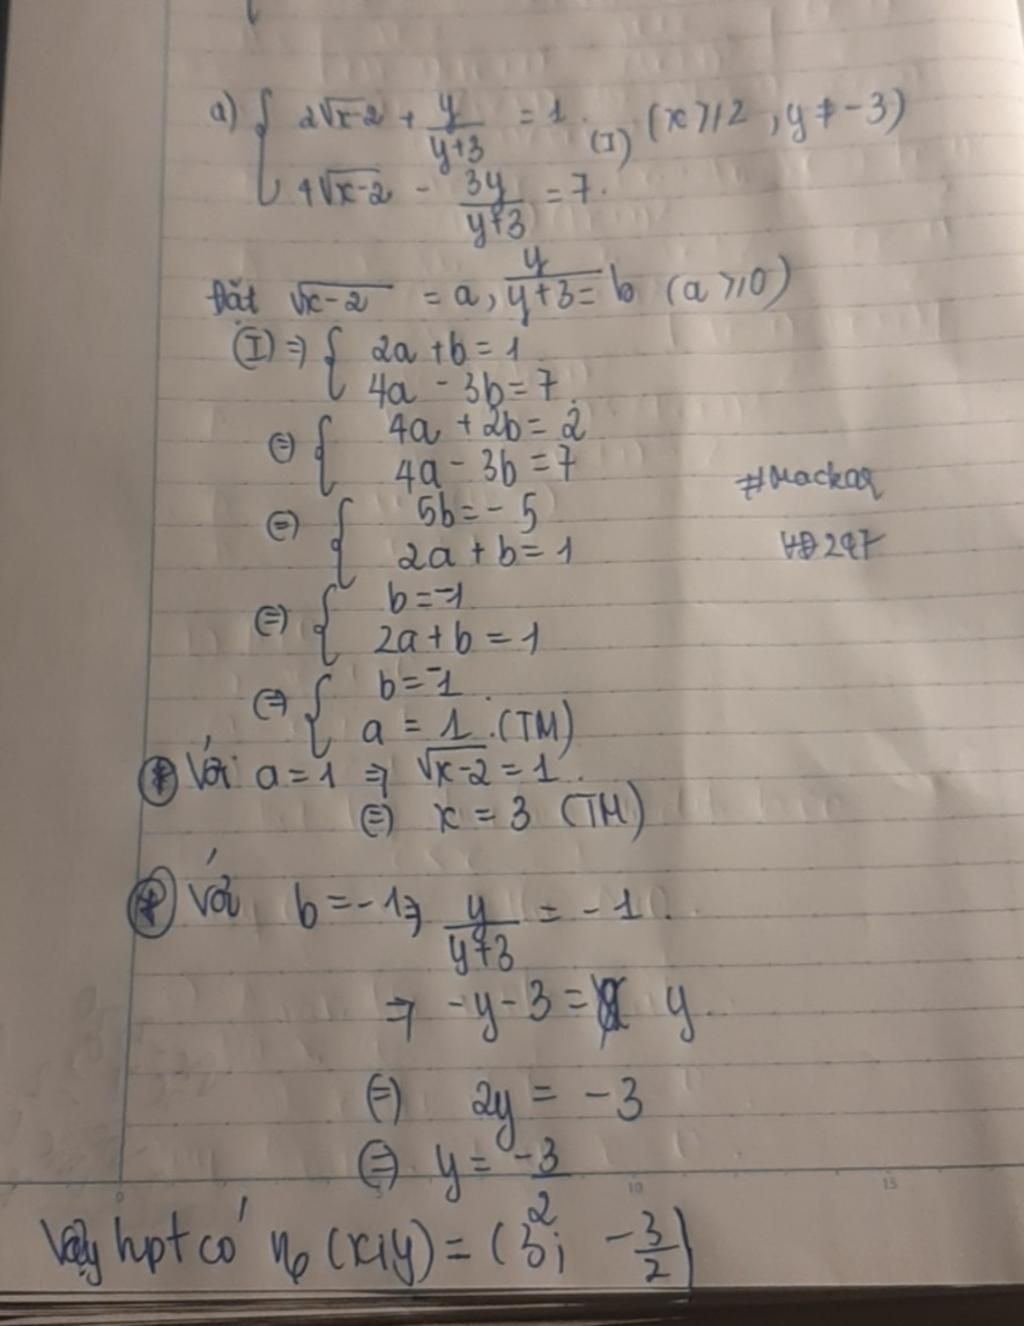 a) { 2√x-2 + y/y+3 = 1 (I) (x ⩾ 2, y ≠ -3)
4√x-2 - 3y/y+3 = 7.
Đặt √x-2 = a, y/y+3 = b (a ⩾ 0)
(I) ⇒ { 2a + b = 1
4a - 3b = 7
⇔ { 4a + 2b = 2
4a - 3b = 7
#Mackar
⇔ { 5b = -5
2a + b = 1
⇔ { b = -1
2a + b = 1
⇔ { b = -1
a = 1 (TM)
* Với a = 1 ⇒ √x-2 = 1
⇔ x = 3 (TM)
* Với b = -1 ⇒ y/y+3 = -1
⇒ -y - 3 = y
⇔ 2y = -3
⇔ y = -3/2
10 15
Vậy hpt có no (x;y) = (3; -3/2)